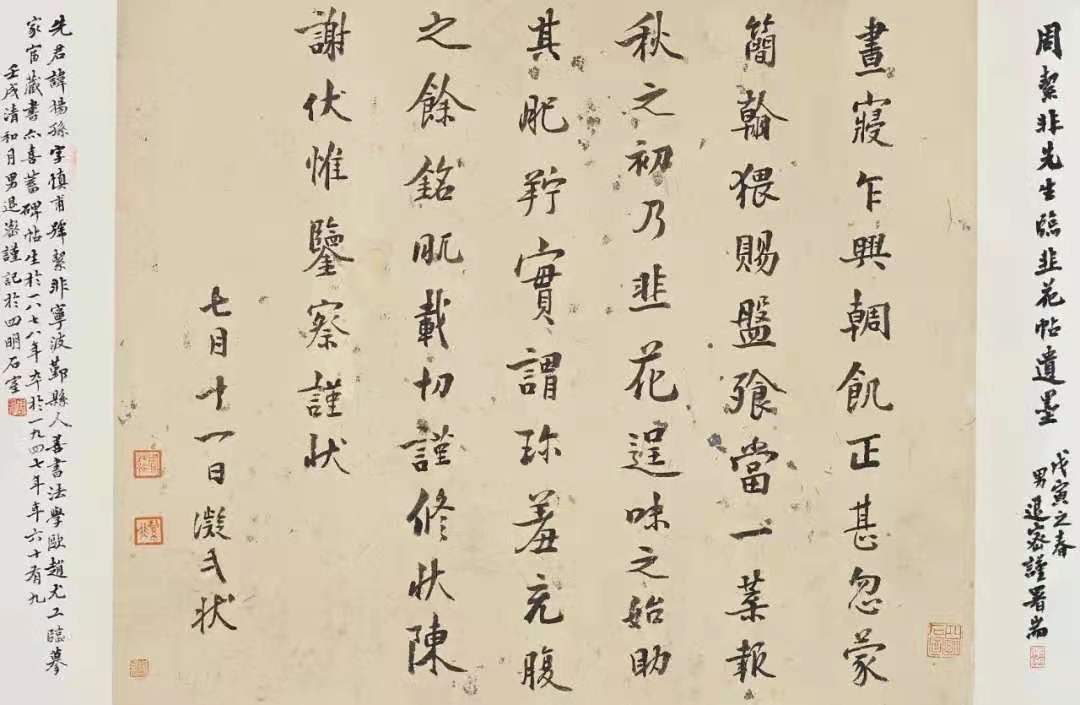 周絜非先生臨韭花帖遺墨
戊寅之春
男退密謹署耑
晝寢乍興輖飢正甚忽蒙
簡翰猥賜盤飱當一葉報
秋之初乃韭花逞味之始助
其肥羜實謂珍羞充腹
之餘銘肌載切謹修狀陳
謝伏惟鑒察謹狀
七月十一日凝式狀
先君諱揚孫字慎甫號絜非寧波鄞縣人善書法學歐趙尤工臨摹
家富藏書亦喜蓄碑帖生於一八七八年卒於一九四七年年六十有九
壬戌清和月男退密謹記於四明石室